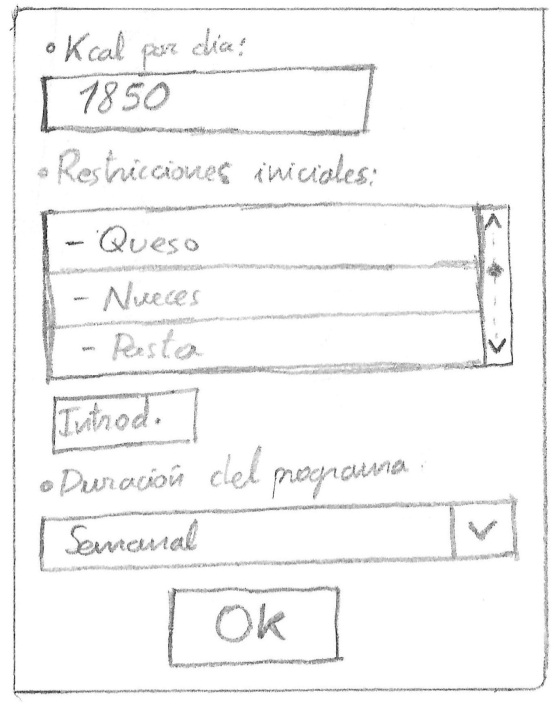 • Kcal por día:
1850
• Restricciones iniciales:
- Queso
- Nueces
- Pasta
Introd.
• Duración del programa.
Semanal
Ok